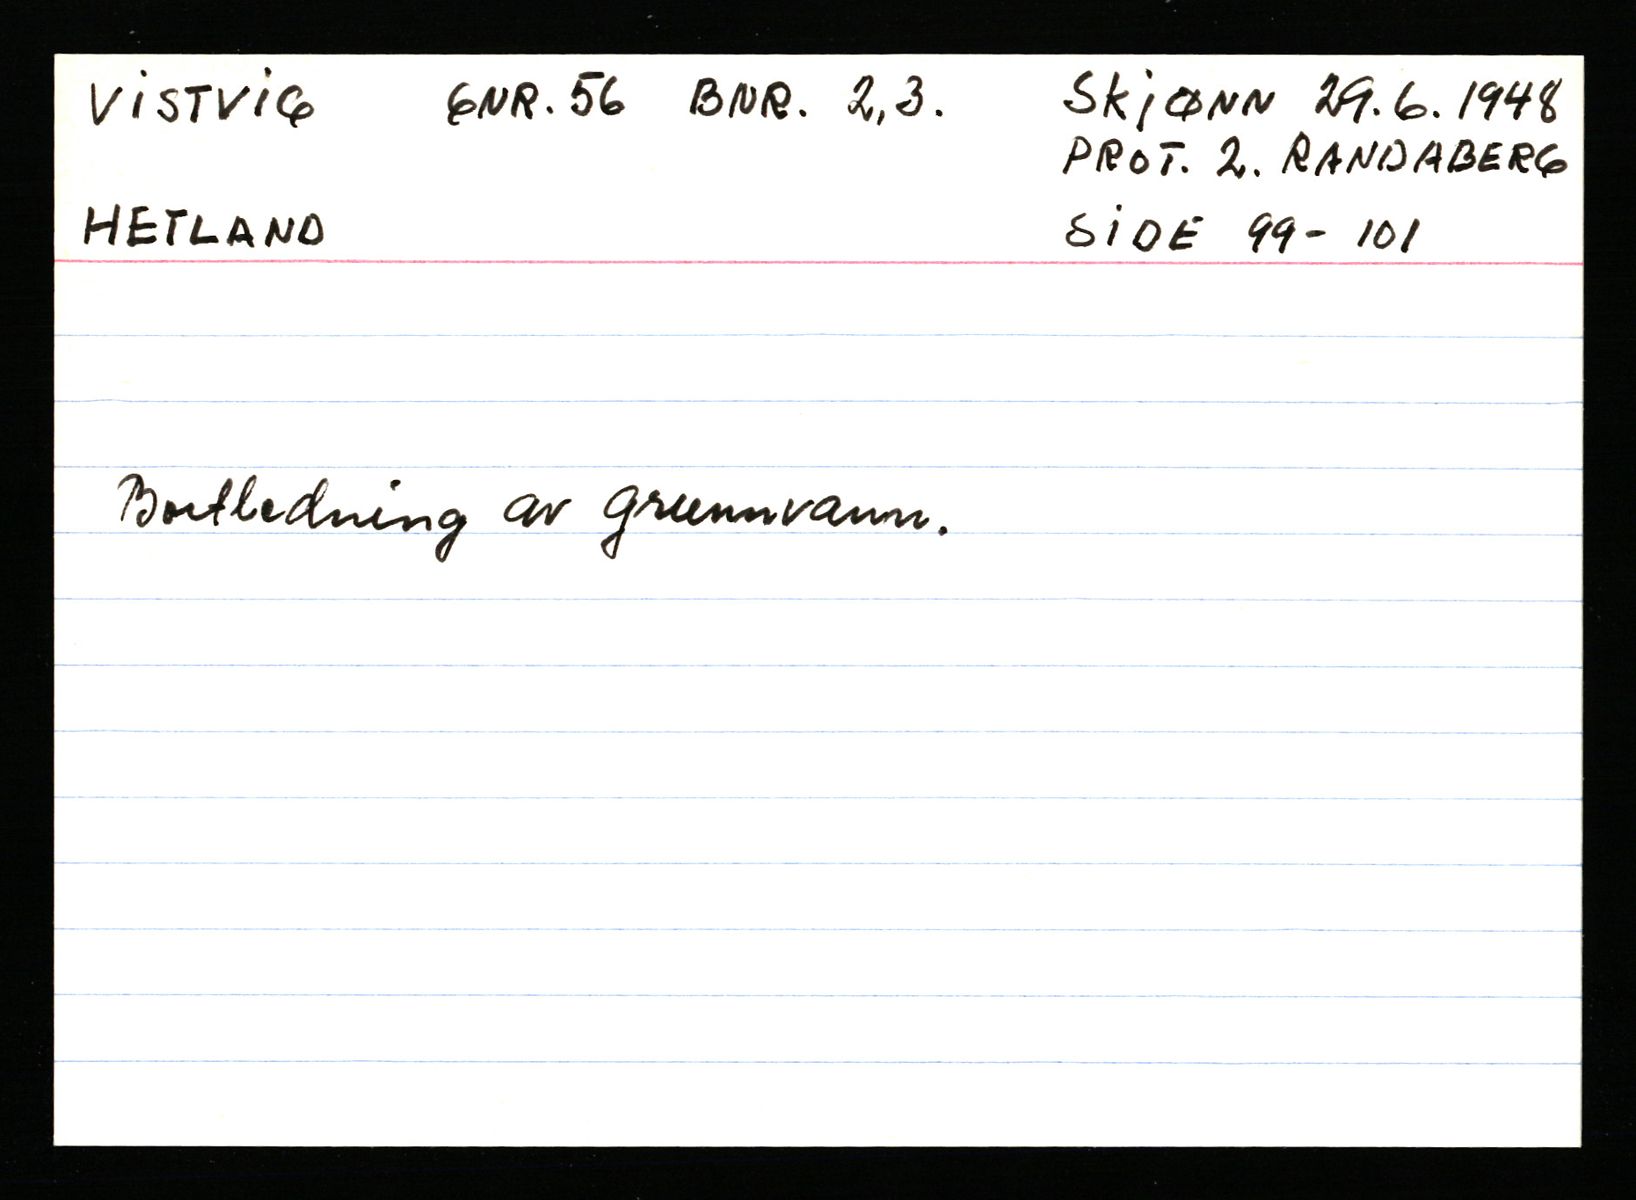 VISTVIG GNR. 56 BNR. 2,3. SKJØNN 29.6.1948
PROT. 2. RANDABERG
HETLAND SIDE 99-101
Bortledning av grunnvann.